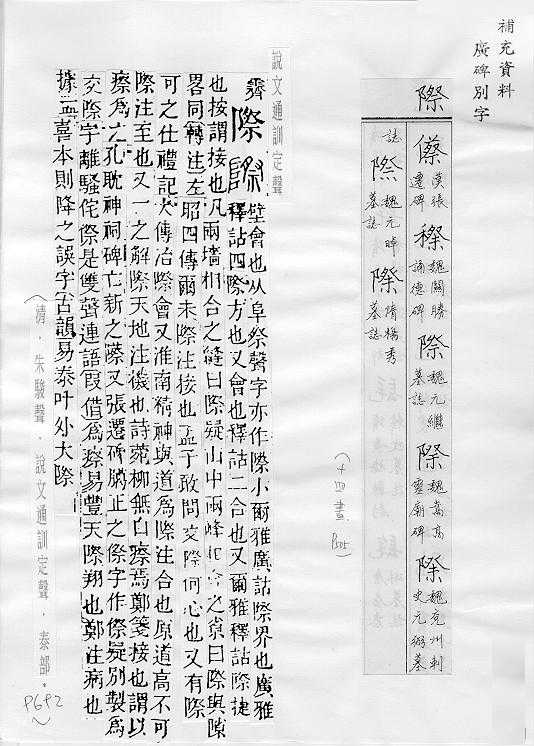 補充資料
廣碑別字
際
傺 漢張遷碑 穄 魏闕勝誦德碑 際 魏元繼墓誌 際 魏嵩高靈廟碑 際 魏兗州刺史元弼墓
誌 際 魏元晫墓誌 際 隋楊秀墓誌
(十四畫 P505)
說文通訓定聲
霽 際 壁會也从阜祭聲字亦作㡜小爾雅廣詁際界也廣雅
釋詁四際方也又會也釋詁二合也又爾雅釋詁際捷
也按謂接也凡兩墻相合之縫曰際疑山中兩峰相合之 曰際與隙
畧同轉注左昭四傳爾未際注接也孟子敢問交際何心也又有際
可之仕禮記大傳冶際會又淮南精神與道為際注合也原道高不可
際注至也又一之解際天地注機也詩菀柳無自瘵焉鄭箋接也謂以
瘵為之孔耽神祠碑亡新之 又張遷碑臘正之傺字作傺疑別製為
交際字離騷侘傺是雙聲連語叚借為瘵易豐天際翔也鄭注病也
據孟喜本則降之誤字古韻易泰叶外大際
(清．朱駿聲．說文通訓定聲．泰部．
P692